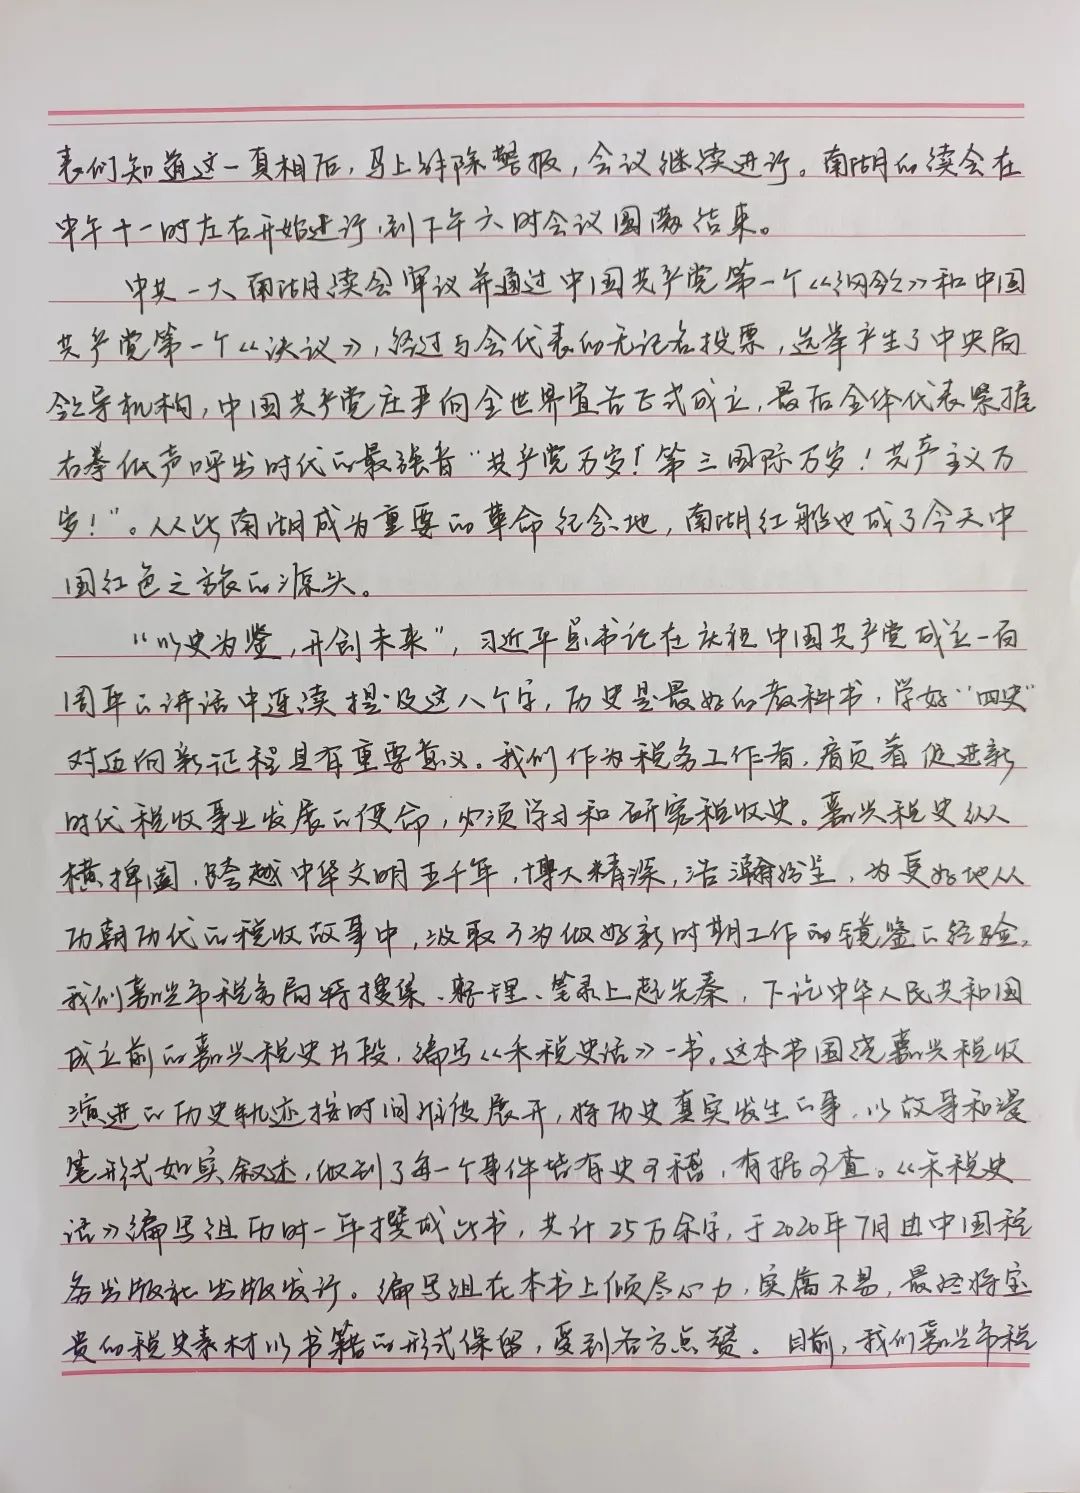 表们知道这一真相后，马上解除警报，会议继续进行。南湖的续会在
中午十一时左右开始进行，到下午六时会议圆满结束。
中共一大南湖续会审议并通过中国共产党第一个《纲领》和中国
共产党第一个《决议》，经过与会代表的无记名投票，选举产生了中央局
领导机构，中国共产党庄严向全世界宣告正式成立，最后全体代表紧握
右拳低声呼出时代的最强音“共产党万岁！第三国际万岁！共产主义万
岁！”。从此南湖成为重要的革命纪念地，南湖红船也成了今天中
国红色之旅的源头。
“以史为鉴，开创未来”，习近平总书记在庆祝中国共产党成立一百
周年的讲话中连续提及这八个字，历史是最好的教科书，学好“四史”
对迈向新征程具有重要意义。我们作为税务工作者，肩负着促进新
时代税收事业发展的使命，必须学习和研究税收史。嘉兴税史纵
横捭阖，跨越中华文明五千年，博大精深，浩瀚纷呈，为更好地从
历朝历代的税收故事中，汲取可为做好新时期工作的镜鉴的经验，
我们嘉兴市税务局将搜集、整理、笔录上起先秦，下讫中华人民共和国
成立前的嘉兴税史片段，编写《禾税史话》一书。这本书围绕嘉兴税收
演进的历史轨迹按时间维度展开，将历史真实发生的事，以故事和漫
笔形式如实叙述，做到了每一个事件皆有史可稽，有据可查。《禾税史
话》编写组历时一年撰成此书，共计25万余字，于2020年7月由中国税
务出版社出版发行。编写组在本书上倾尽心力，实属不易，最终将宝
贵的税史素材以书籍的形式保留，受到各方点赞。目前，我们嘉兴市税